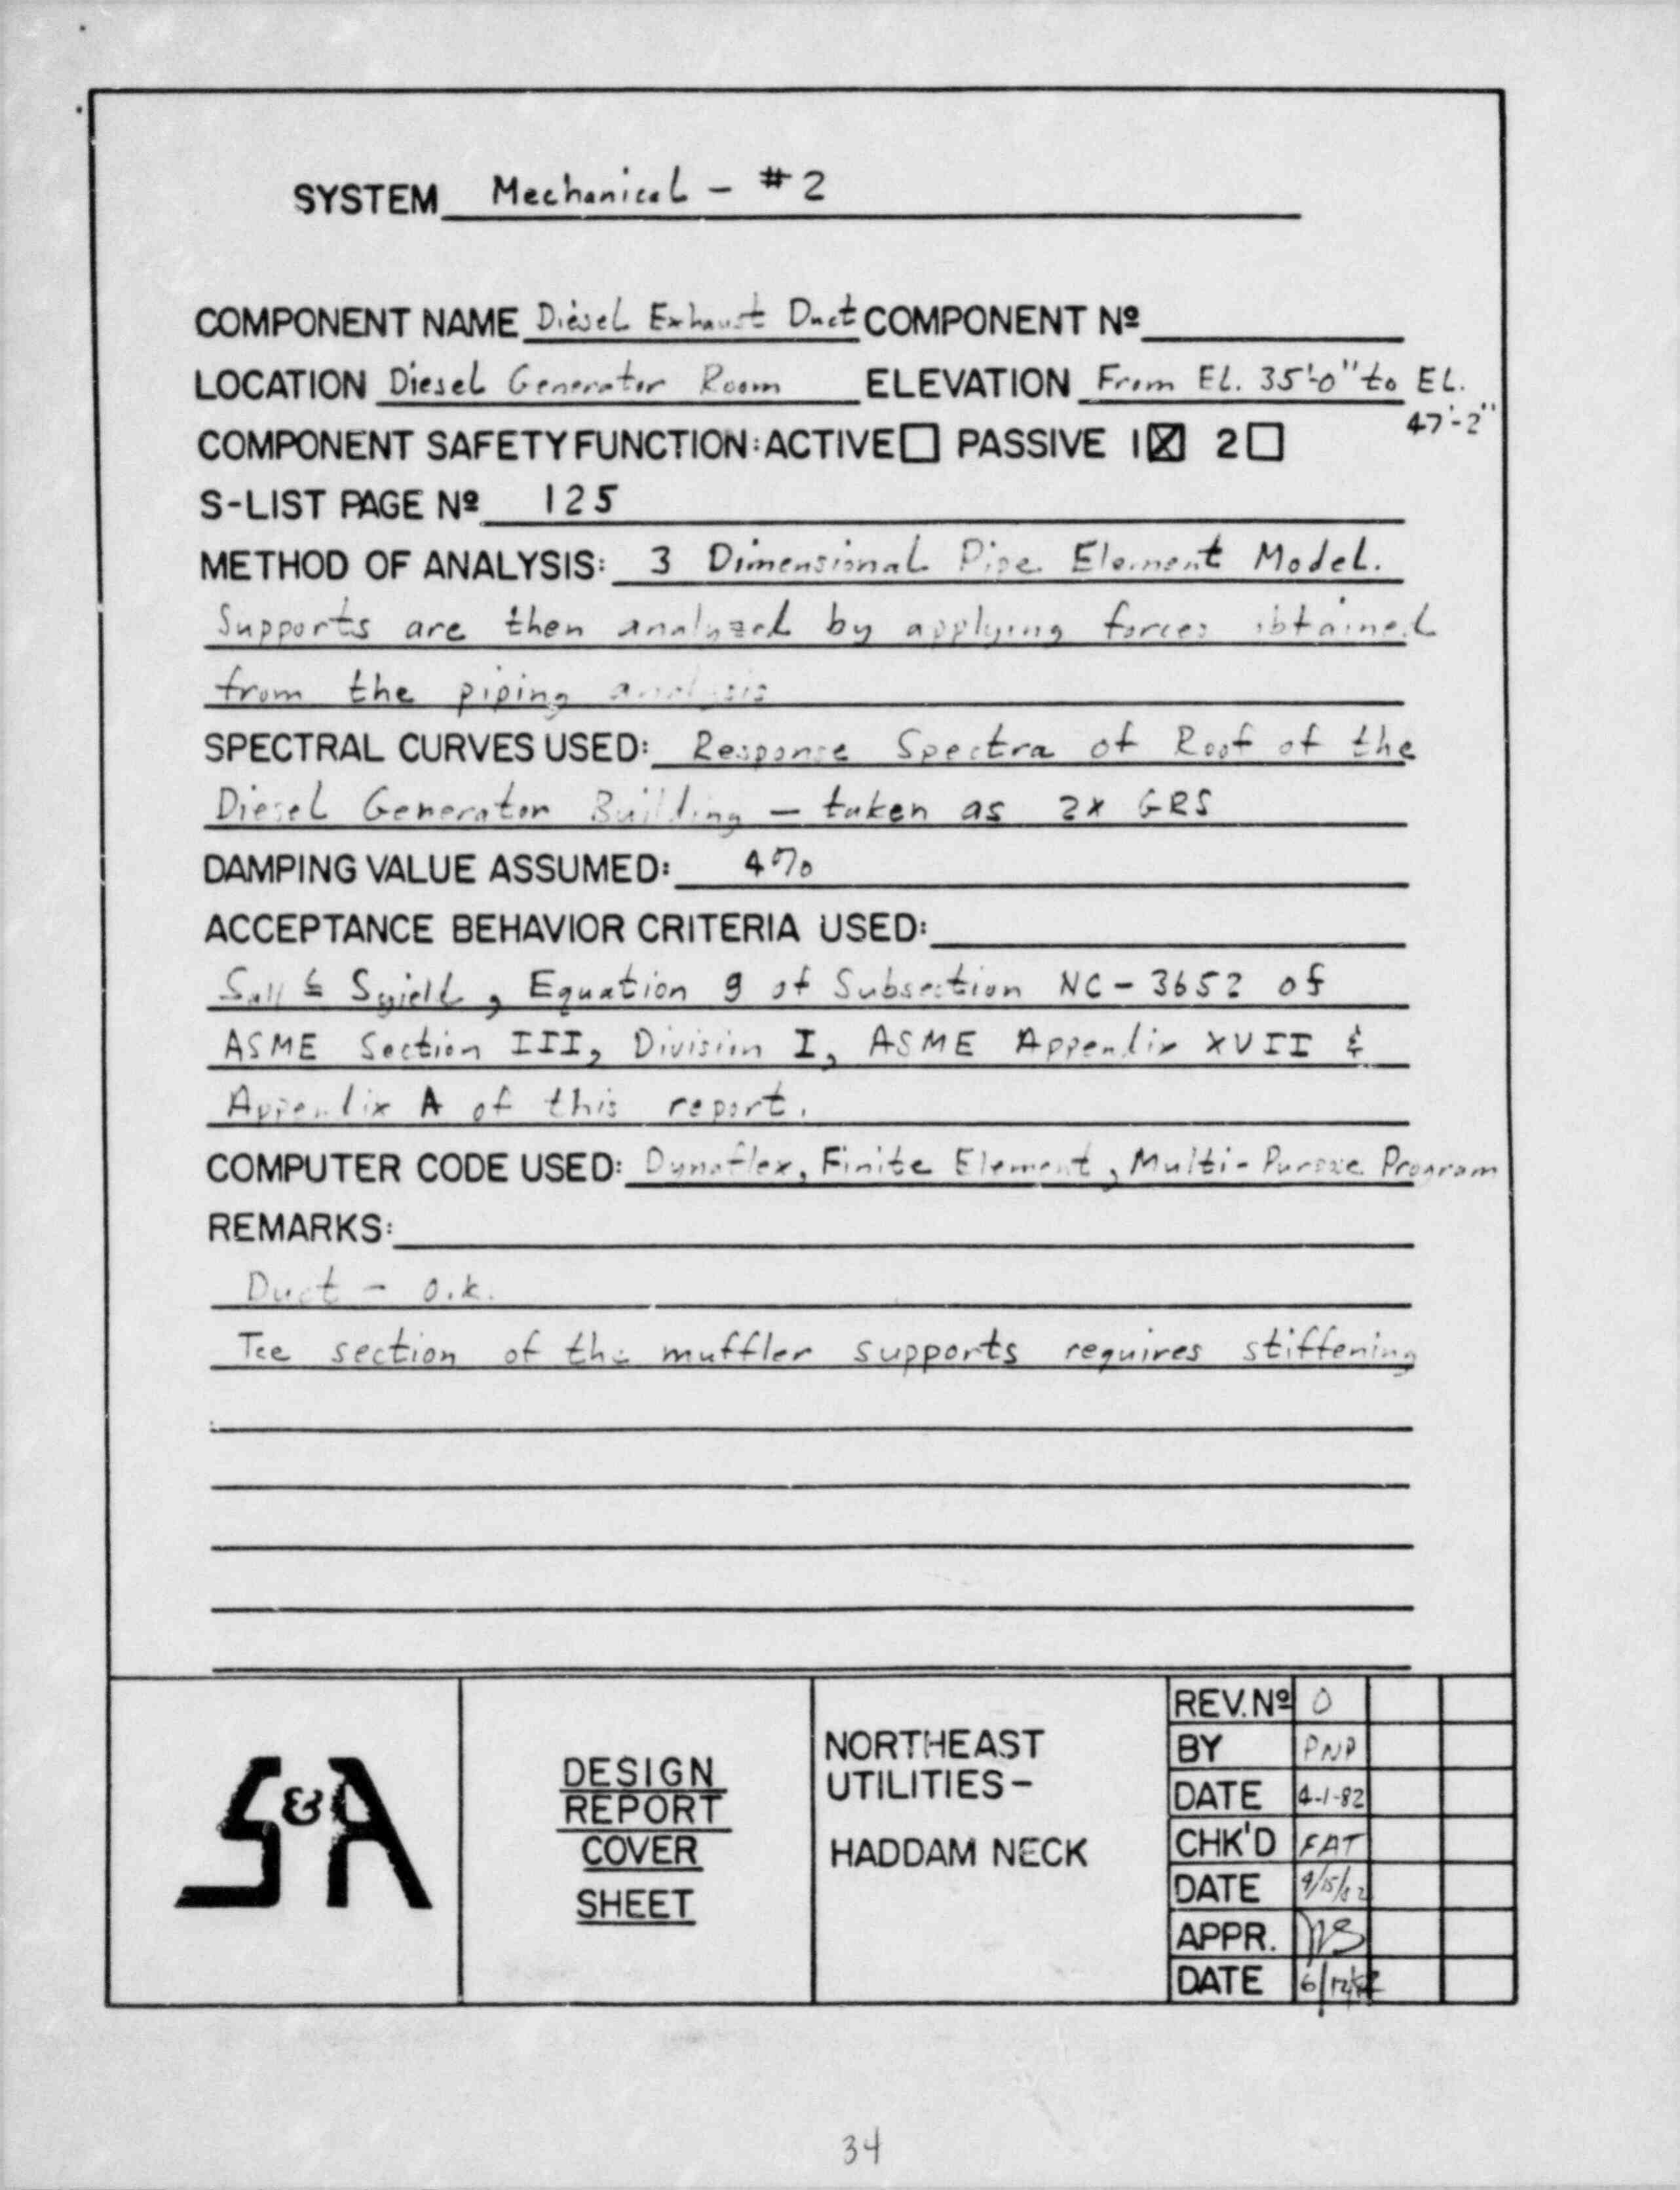 SYSTEM Mechanical - #2
COMPONENT NAME Diesel Exhaust Duct COMPONENT Nº
LOCATION Diesel Generator Room ELEVATION From EL. 35'-0" to EL.
47'-2"
COMPONENT SAFETY FUNCTION: ACTIVE☐ PASSIVE 1☒ 2☐
S-LIST PAGE Nº 125
METHOD OF ANALYSIS: 3 Dimensional Pipe Element Model.
Supports are then analyzed by applying forces obtained
from the piping analysis
SPECTRAL CURVES USED: Response Spectra of Roof of the
Diesel Generator Building - taken as 2x GRS
DAMPING VALUE ASSUMED: 4%
ACCEPTANCE BEHAVIOR CRITERIA USED:
Sall ≤ Syield, Equation 9 of Subsection NC-3652 of
ASME Section III, Division I, ASME Appendix XVII &
Appendix A of this report.
COMPUTER CODE USED: Dynaflex, Finite Element, Multi-Purpose Program
REMARKS:
Duct - o.k.
Tee section of the muffler supports requires stiffening
S&A
DESIGN
REPORT
COVER
SHEET
NORTHEAST
UTILITIES-
HADDAM NECK
REV. Nº 0
BY PNP
DATE 4-1-82
CHK'D FAT
DATE 4/15/82
APPR.
DATE
34